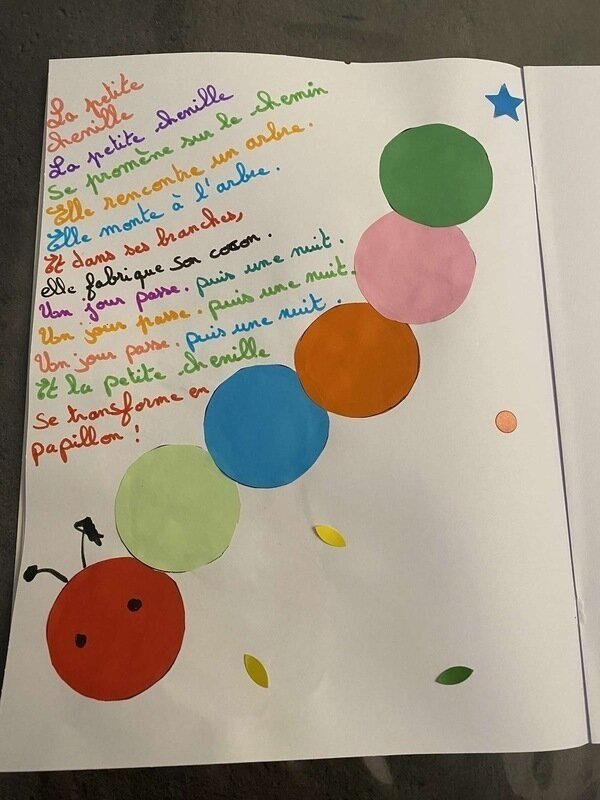 La petite
chenille
La petite chenille
Se promène sur le chemin
Elle rencontre un arbre.
Elle monte à l'arbre.
Et dans ses branches,
elle fabrique son cocon.
Un jour passe. puis une nuit.
Un jour passe. puis une nuit.
Un jour passe. puis une nuit.
Et la petite chenille
se transforme en
papillon !